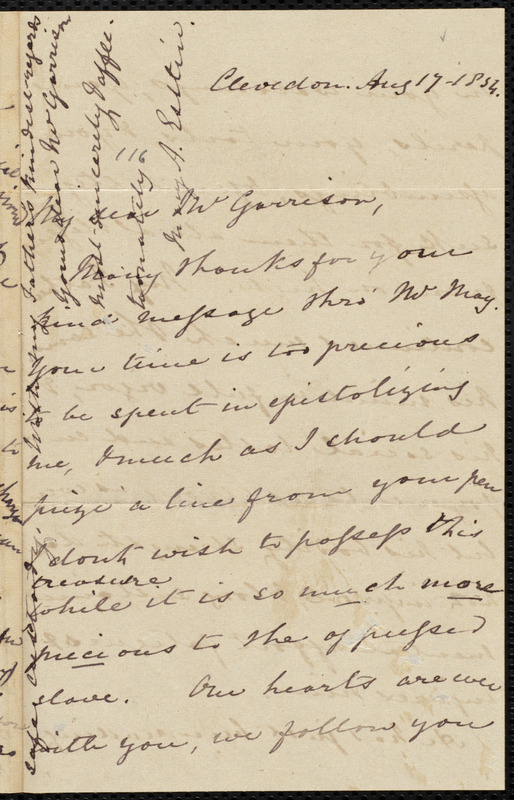 Clevedon. Aug 17 - 1854.
116
My dear Mr Garrison,
Many thanks for your
kind message thro' Mr May.
Your time is too precious
to be spent in epistolizing
me, & much as I should
prize a line from your pen
I don't wish to possess this
treasure
while it is so much more
precious to the oppressed
slave. Our hearts are ever
with you, we follow you
With my Father's kindest regards
Yours dear Mr Garrison
most sincerely &
Mary A. Estlin.